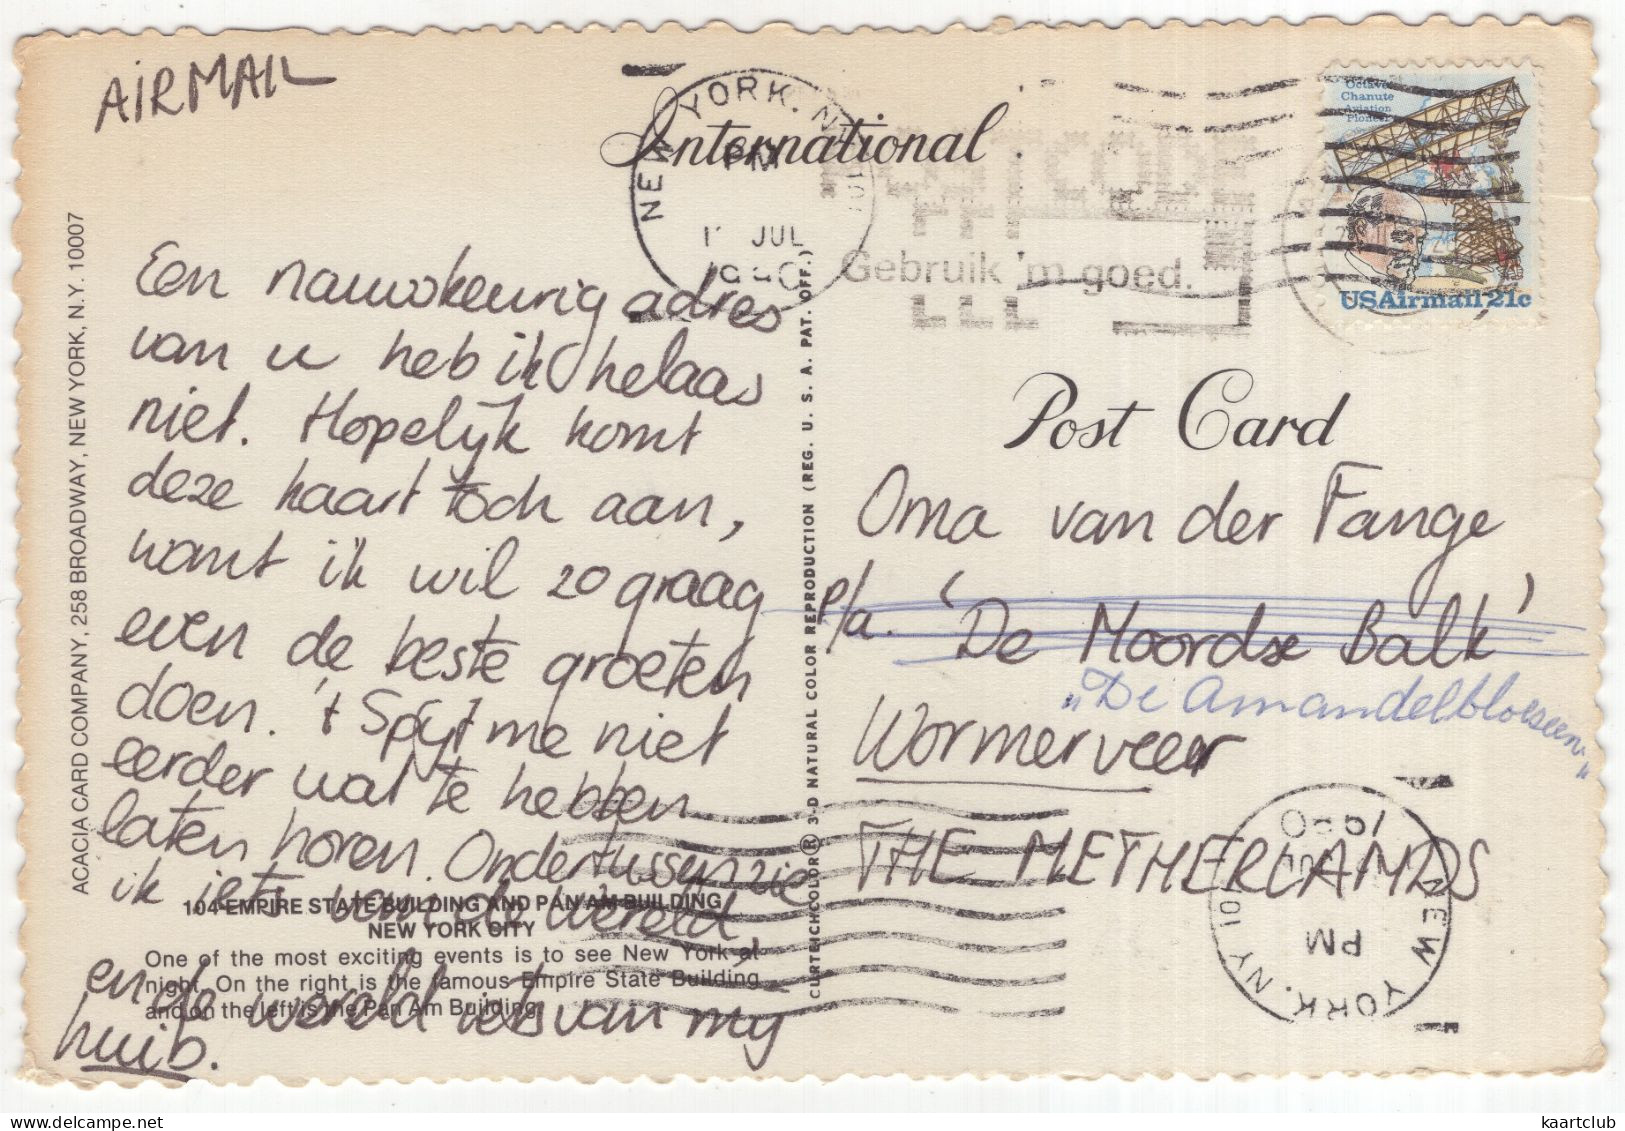 AIRMAIL
International
NEW YORK, N.Y. 101
PM
JUL
1980
Octave
Chanute
Aviation
Pioneer
USAirmail 21c
POSTCODE
Gebruik 'm goed.
Post Card
Een nauwkeurig adres
van u heb ik helaas
niet. Hopelijk komt
deze kaart toch aan,
want ik wil zo graag
even de beste groeten
doen. 't Spijt me niet
eerder wat te hebben
laten horen. Ondertussen zie
ik iets van de wereld
en de wereld iets van mij
huib.
104-EMPIRE STATE BUILDING AND PAN AM BUILDING
NEW YORK CITY
One of the most exciting events is to see New York at
night. On the right is the famous Empire State Building
and on the left is the Pan Am Building.
ACACIA CARD COMPANY, 258 BROADWAY, NEW YORK, N.Y. 10007
CURTEICHCOLOR® 3-D NATURAL COLOR REPRODUCTION (REG. U. S. A. PAT. OFF.)
Oma van der Fange
p/a. 'De Moordse Balk'
"De Amandelbloesem"
Wormerveer
THE NETHERLANDS
NEW YORK, NY 101
PM
JUL
1980
kaartclub